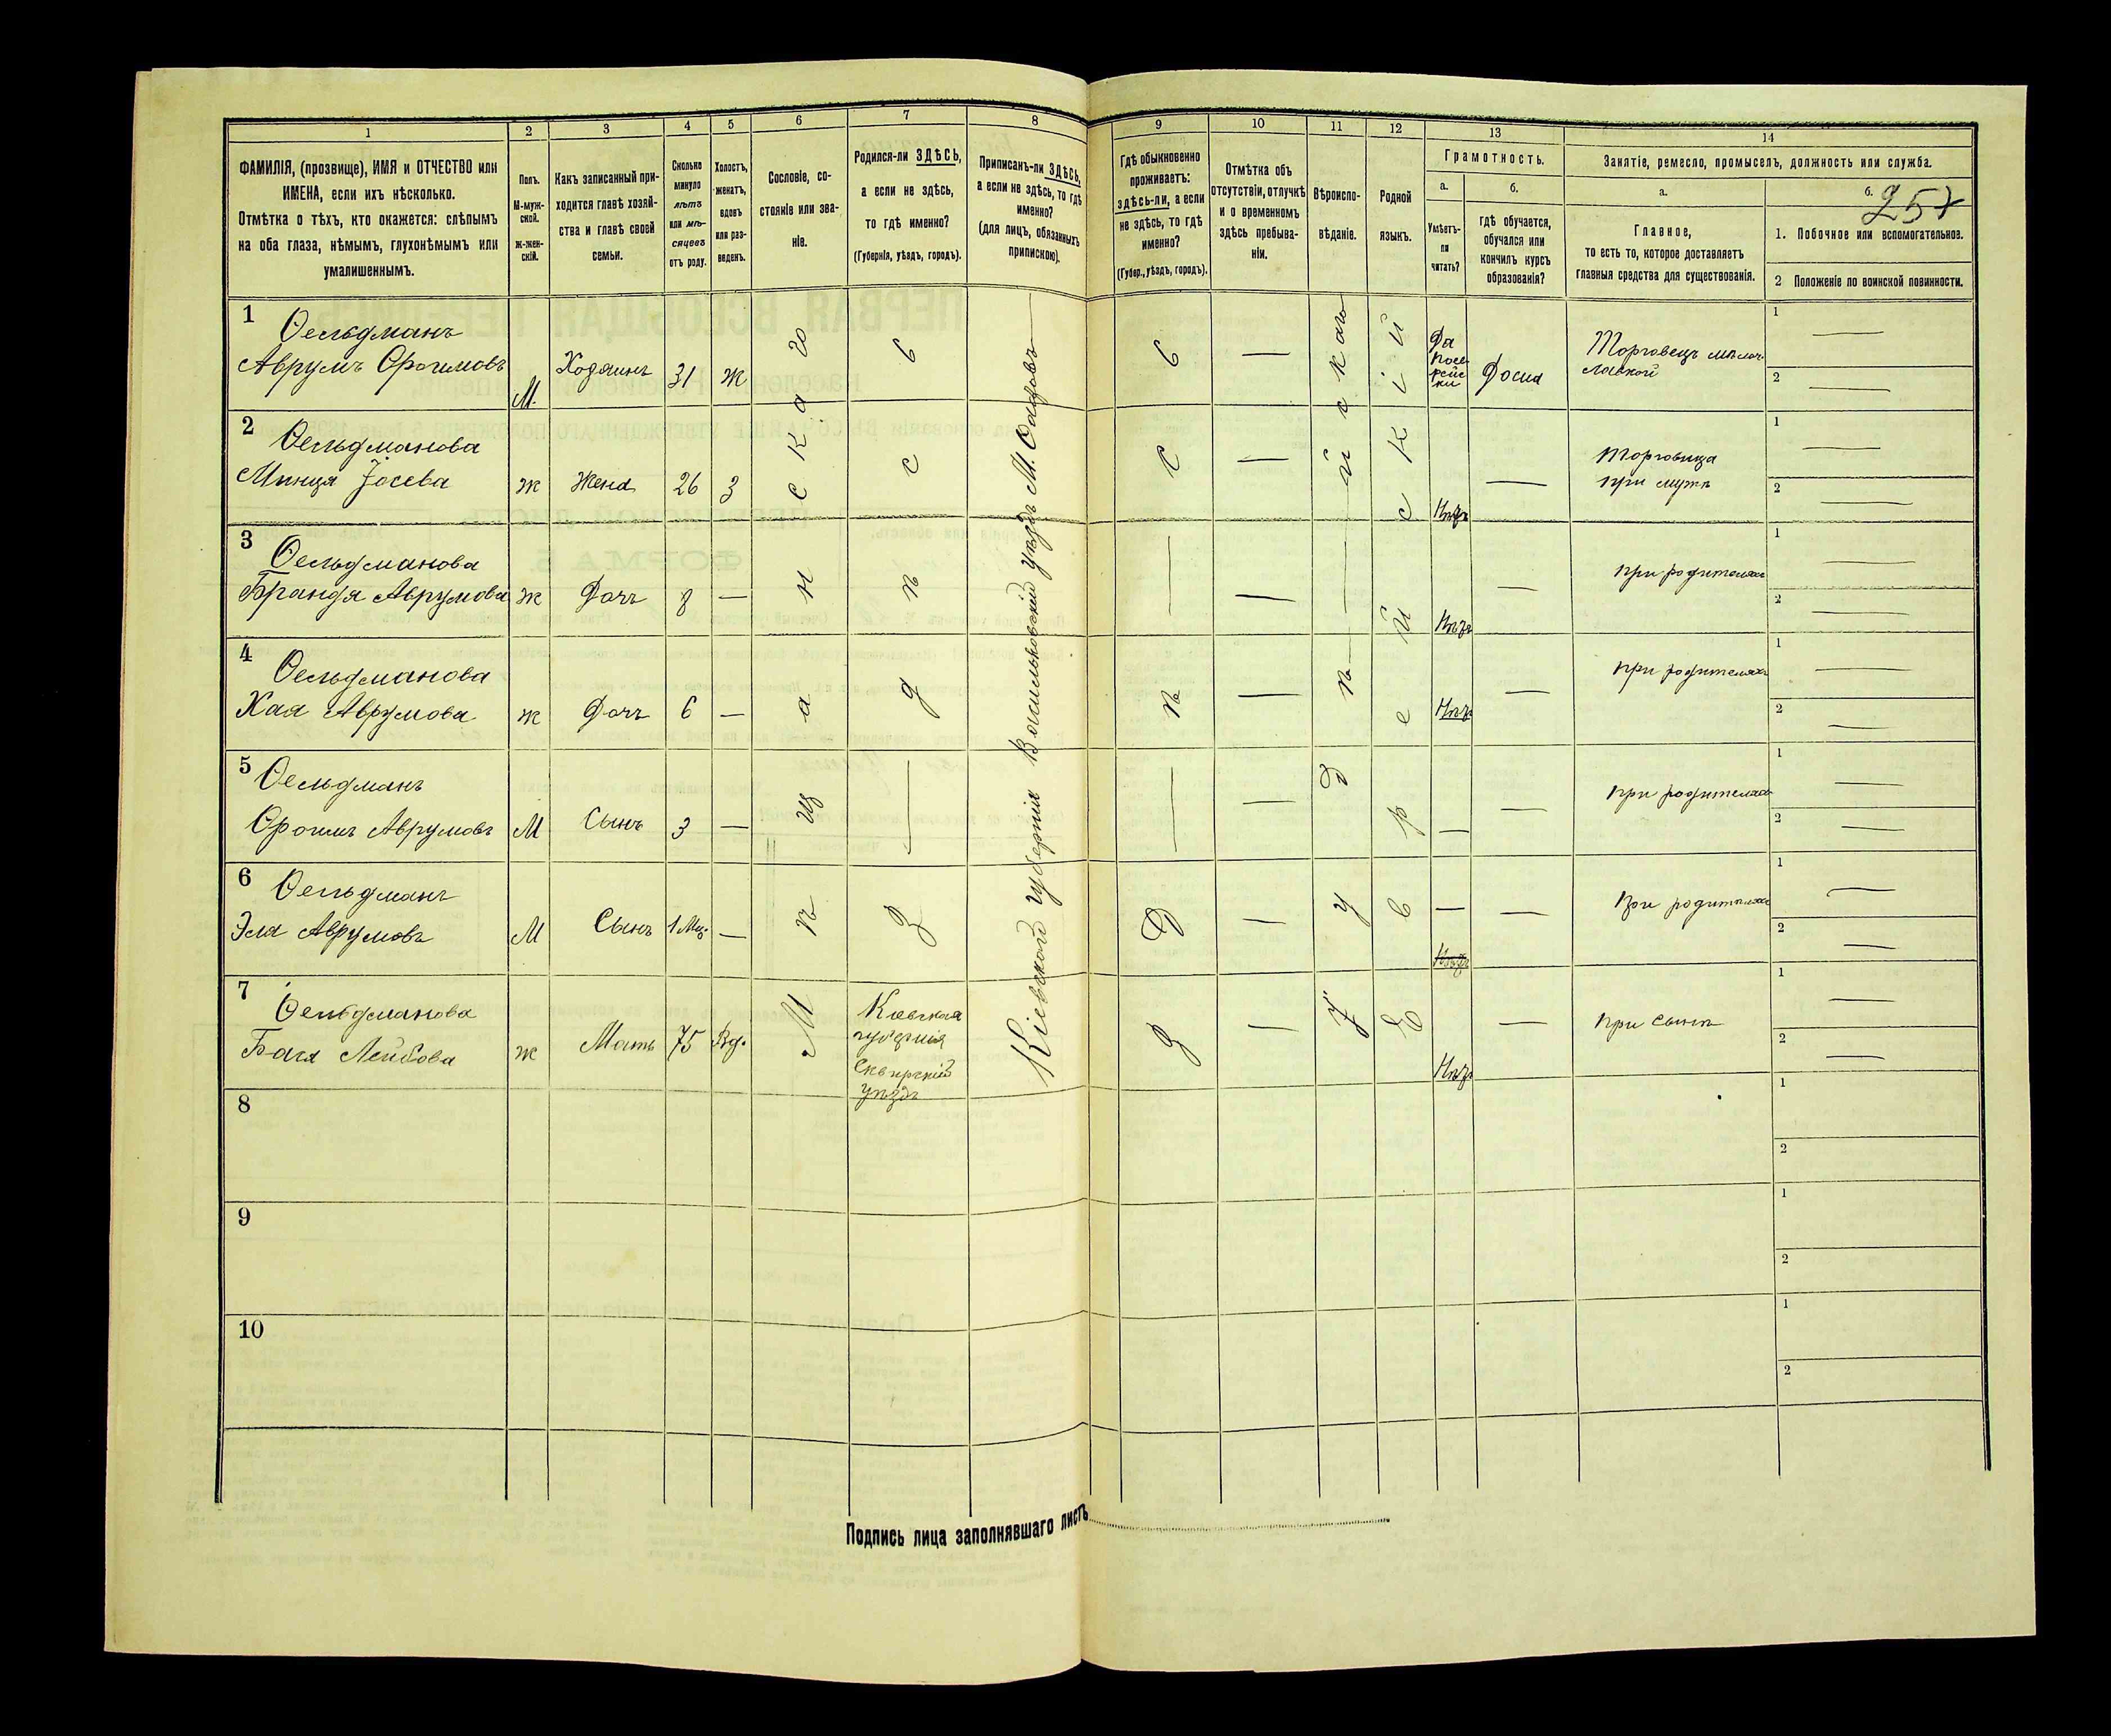 1 2 3 4 5 6 7 8 9 10 11 12 13 14
ФАМИЛІЯ, (прозвище), ИМЯ и ОТЧЕСТВО или
ИМЕНА, если ихъ нѣсколько.
Отмѣтка о тѣхъ, кто окажется: слѣпымъ
на оба глаза, нѣмымъ, глухонѣмымъ или
умалишеннымъ.
Полъ.
М-муж-
ской.
ж-жен-
скій.
Какъ записанный при-
ходится главѣ хозяй-
ства и главѣ своей
семьи.
Сколько
минуло
лѣтъ
или мѣ-
сяцевъ
отъ роду.
Холостъ,
женатъ,
вдовъ
или раз-
веденъ.
Сословіе, со-
стояніе или зва-
ніе.
Родился-ли ЗДѢСЬ,
а если не здѣсь,
то гдѣ именно?
(Губернія, уѣздъ, городъ).
Приписанъ-ли ЗДѢСЬ,
а если не здѣсь, то гдѣ
именно?
(для лицъ, обязанныхъ
припискою).
Гдѣ обыкновенно
проживаетъ:
здѣсь-ли, а если
не здѣсь, то гдѣ
именно?
(Губер., уѣздъ, городъ).
Отмѣтка объ
отсутствіи, отлучкѣ
и о временномъ
здѣсь пребыва-
ніи.
Вѣроиспо-
вѣданіе.
Родной
языкъ.
Грамотность.
а.
Умѣетъ-
ли
читать?
б.
гдѣ обучается,
обучался или
кончилъ курсъ
образованія?
Занятіе, ремесло, промыселъ, должность или служба.
а.
Главное,
то есть то, которое доставляетъ
главныя средства для существованія.
б.
257
1. Побочное или вспомогательное.
2 Положеніе по воинской повинности.
1 Ѳельдманъ
Аврумъ Фроимовъ М. Хозяинъ 31 ж Да Дома Торговецъ
2 Ѳельдманова
Минця Іосева ж Жена 26 З Нѣтъ Торговица
при мужѣ
3 Ѳельдманова
Брандя Аврумова ж Дочь 8 — — Нѣтъ — при родителяхъ
4 Ѳельдманова
Хая Аврумова ж Дочь 6 — — Нѣтъ — при родителяхъ
5 Ѳельдманъ
Фроимъ Аврумовъ М Сынъ 3 — — — — при родителяхъ
6 Ѳельдманъ
Эля Аврумовъ М Сынъ 1 Мц. — — — — при родителяхъ
7 Ѳельдманова
Лейбова ж Мать 75 Вд. — Нѣтъ — при сынѣ
Мѣщанскаго
здѣсь
Кіевская
губернія
Сквирскій
уѣздъ
Кіевской губерніи Васильковскій уѣздъ М.
здѣсь
Іудѣйская
Еврейскій
8
9
10
Подпись лица заполнявшаго листъ